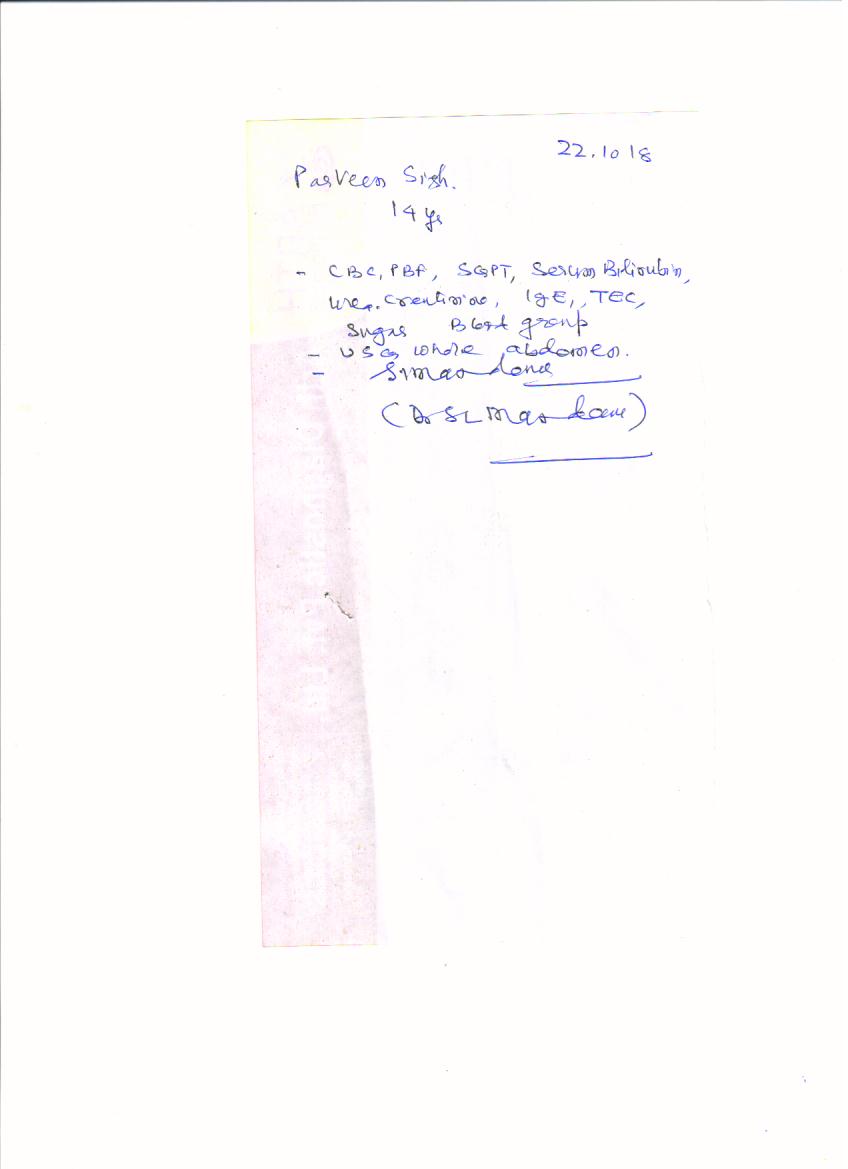 22.10 18
Parveen Sigh.
14 ys
- CBC, PBF, SGPT, Serum Bilirubin,
urea. Creatinine, IgE, TEC,
Sugar Blood group
- USG whole abdomen.
-
(Dr SL